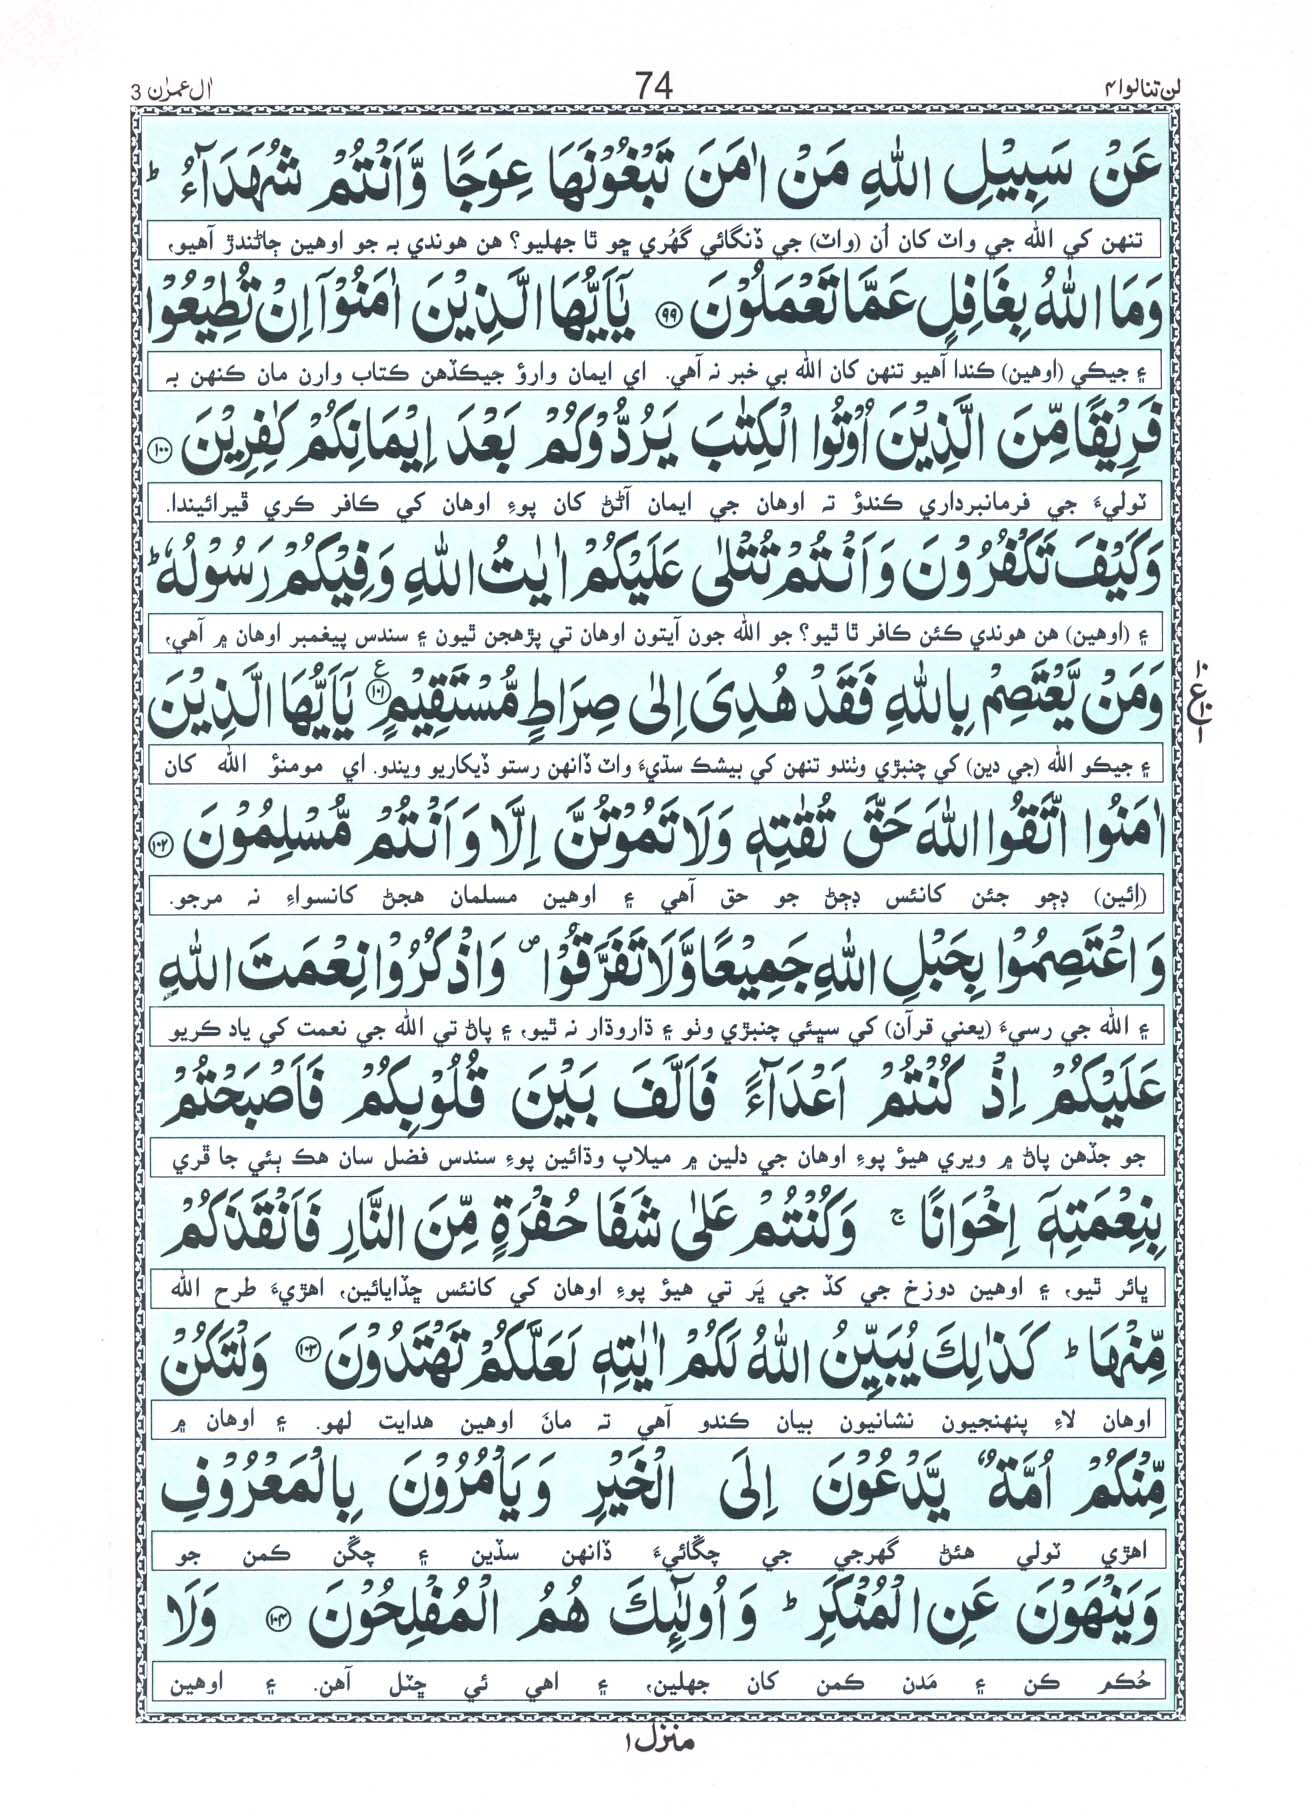 لن تنالوا ۴
74
اٰل عمرٰن 3
عَنْ سَبِيْلِ اللّٰهِ مَنْ اٰمَنَ تَبْغُوْنَهَا عِوَجًا وَّاَنْتُمْ شُهَدَآءُ ؕ
تنهن کي الله جي واٽ کان اُن (واٽ) جي ڏنگائي گهُري ڇو ٿا جهليو؟ هن هوندي به جو اوهين ڄاڻندڙ آهيو،
وَمَا اللّٰهُ بِغَافِلٍ عَمَّا تَعْمَلُوْنَ ۹۹ يٰٓاَيُّهَا الَّذِيْنَ اٰمَنُوْٓا اِنْ تُطِيْعُوْا
۽ جيڪي (اوهين) ڪندا آهيو تنهن کان الله بي خبر نہ آهي. اي ايمان وارؤ جيڪڏهن ڪتاب وارن مان ڪنهن بہ
فَرِيْقًا مِّنَ الَّذِيْنَ اُوْتُوا الْكِتٰبَ يَرُدُّوْكُمْ بَعْدَ اِيْمَانِكُمْ كٰفِرِيْنَ ۱۰۰
ٽوليءَ جي فرمانبرداري ڪندؤ تہ اوهان جي ايمان آڻڻ کان پوءِ اوهان کي ڪافر ڪري ڦيرائيندا.
وَكَيْفَ تَكْفُرُوْنَ وَاَنْتُمْ تُتْلٰى عَلَيْكُمْ اٰيٰتُ اللّٰهِ وَفِيْكُمْ رَسُوْلُهٗ ؕ
۽ (اوهين) هن هوندي ڪئن ڪافر ٿا ٿيو؟ جو الله جون آيتون اوهان تي پڙهجن ٿيون ۽ سندس پيغمبر اوهان ۾ آهي،
وَمَنْ يَّعْتَصِمْ بِاللّٰهِ فَقَدْ هُدِيَ اِلٰى صِرَاطٍ مُّسْتَقِيْمٍ ۱۰۱ ع يٰٓاَيُّهَا الَّذِيْنَ
۱۰ ع ۱۰ ۱
۽ جيڪو الله (جي دين) کي چنبڙي وٺندو تنهن کي بيشڪ سڌيءَ واٽ ڏانهن رستو ڏيکاريو ويندو. اي مومنؤ الله کان
اٰمَنُوا اتَّقُوا اللّٰهَ حَقَّ تُقٰتِهٖ وَلَا تَمُوْتُنَّ اِلَّا وَاَنْتُمْ مُّسْلِمُوْنَ ۱۰۲
(اِئين) ڊڄو جئن کانئس ڊڄڻ جو حق آهي ۽ اوهين مسلمان هجڻ کانسواءِ نہ مرجو.
وَاعْتَصِمُوْا بِحَبْلِ اللّٰهِ جَمِيْعًا وَّلَا تَفَرَّقُوْا ۪ وَاذْكُرُوْا نِعْمَتَ اللّٰهِ
۽ الله جي رسيءَ (يعني قرآن) کي سڀئي چنبڙي وٺو ۽ ڌاروڌار نہ ٿيو، ۽ پاڻ تي الله جي نعمت کي ياد ڪريو
عَلَيْكُمْ اِذْ كُنْتُمْ اَعْدَآءً فَاَلَّفَ بَيْنَ قُلُوْبِكُمْ فَاَصْبَحْتُمْ
جو جڏهن پاڻ ۾ ويري هيؤ پوءِ اوهان جي دلين ۾ ميلاپ وڌائين پوءِ سندس فضل سان هڪ ٻئي جا ڦري
بِنِعْمَتِهٖٓ اِخْوَانًا ۚ وَكُنْتُمْ عَلٰى شَفَا حُفْرَةٍ مِّنَ النَّارِ فَاَنْقَذَكُمْ
ڀائر ٿيو، ۽ اوهين دوزخ جي کڏ جي ڀَر تي هيؤ پوءِ اوهان کي کانئس ڇڏايائين، اهڙيءَ طرح الله
مِّنْهَا ؕ كَذٰلِكَ يُبَيِّنُ اللّٰهُ لَكُمْ اٰيٰتِهٖ لَعَلَّكُمْ تَهْتَدُوْنَ ۱۰۳ وَلْتَكُنْ
اوهان لاءِ پنهنجيون نشانيون بيان ڪندو آهي تہ مانَ اوهين هدايت لهو. ۽ اوهان ۾
مِّنْكُمْ اُمَّةٌ يَّدْعُوْنَ اِلَى الْخَيْرِ وَيَاْمُرُوْنَ بِالْمَعْرُوْفِ
اهڙي ٽولي هئڻ گهرجي جي چڱائيءَ ڏانهن سڏين ۽ چڱن ڪمن جو
وَيَنْهَوْنَ عَنِ الْمُنْكَرِ ؕ وَاُولٰٓئِكَ هُمُ الْمُفْلِحُوْنَ ۱۰۴ وَلَا
حُڪم ڪن ۽ مَدن ڪمن کان جهلين، ۽ اهي ئي ڇٽل آهن. ۽ اوهين
منزل ۱